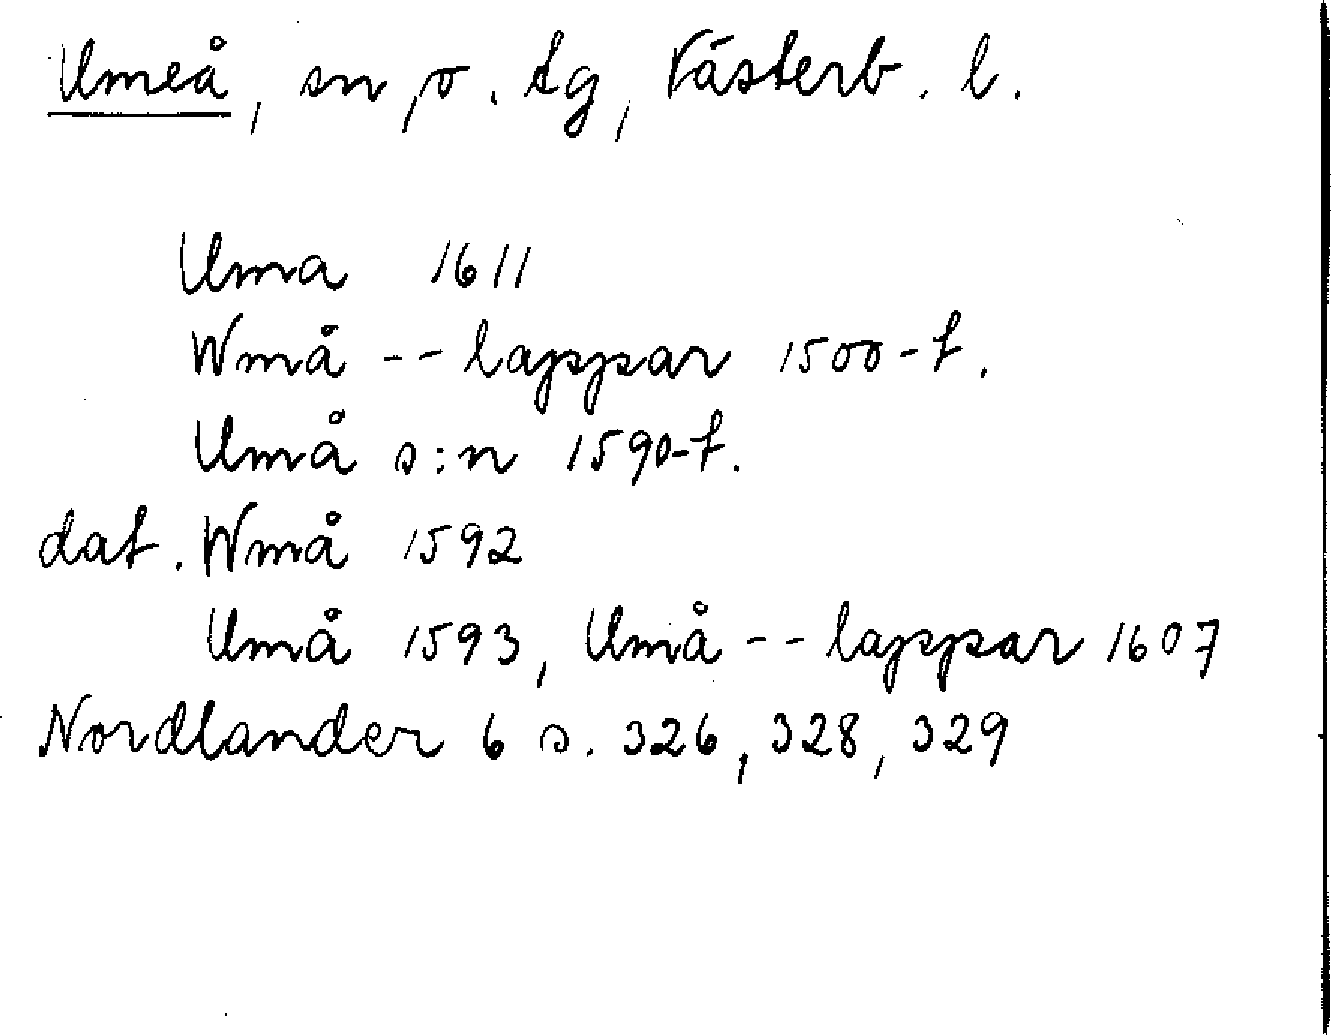 Umeå, sn, o. tg, Västerb. l.
Uma 1611
Wmå -- lappar 1500-t.
Umå s:n 1590-t.
dat. Wmå 1592
Umå 1593, Umå -- lappar 1607
Nordlander 6 s. 326, 328, 329